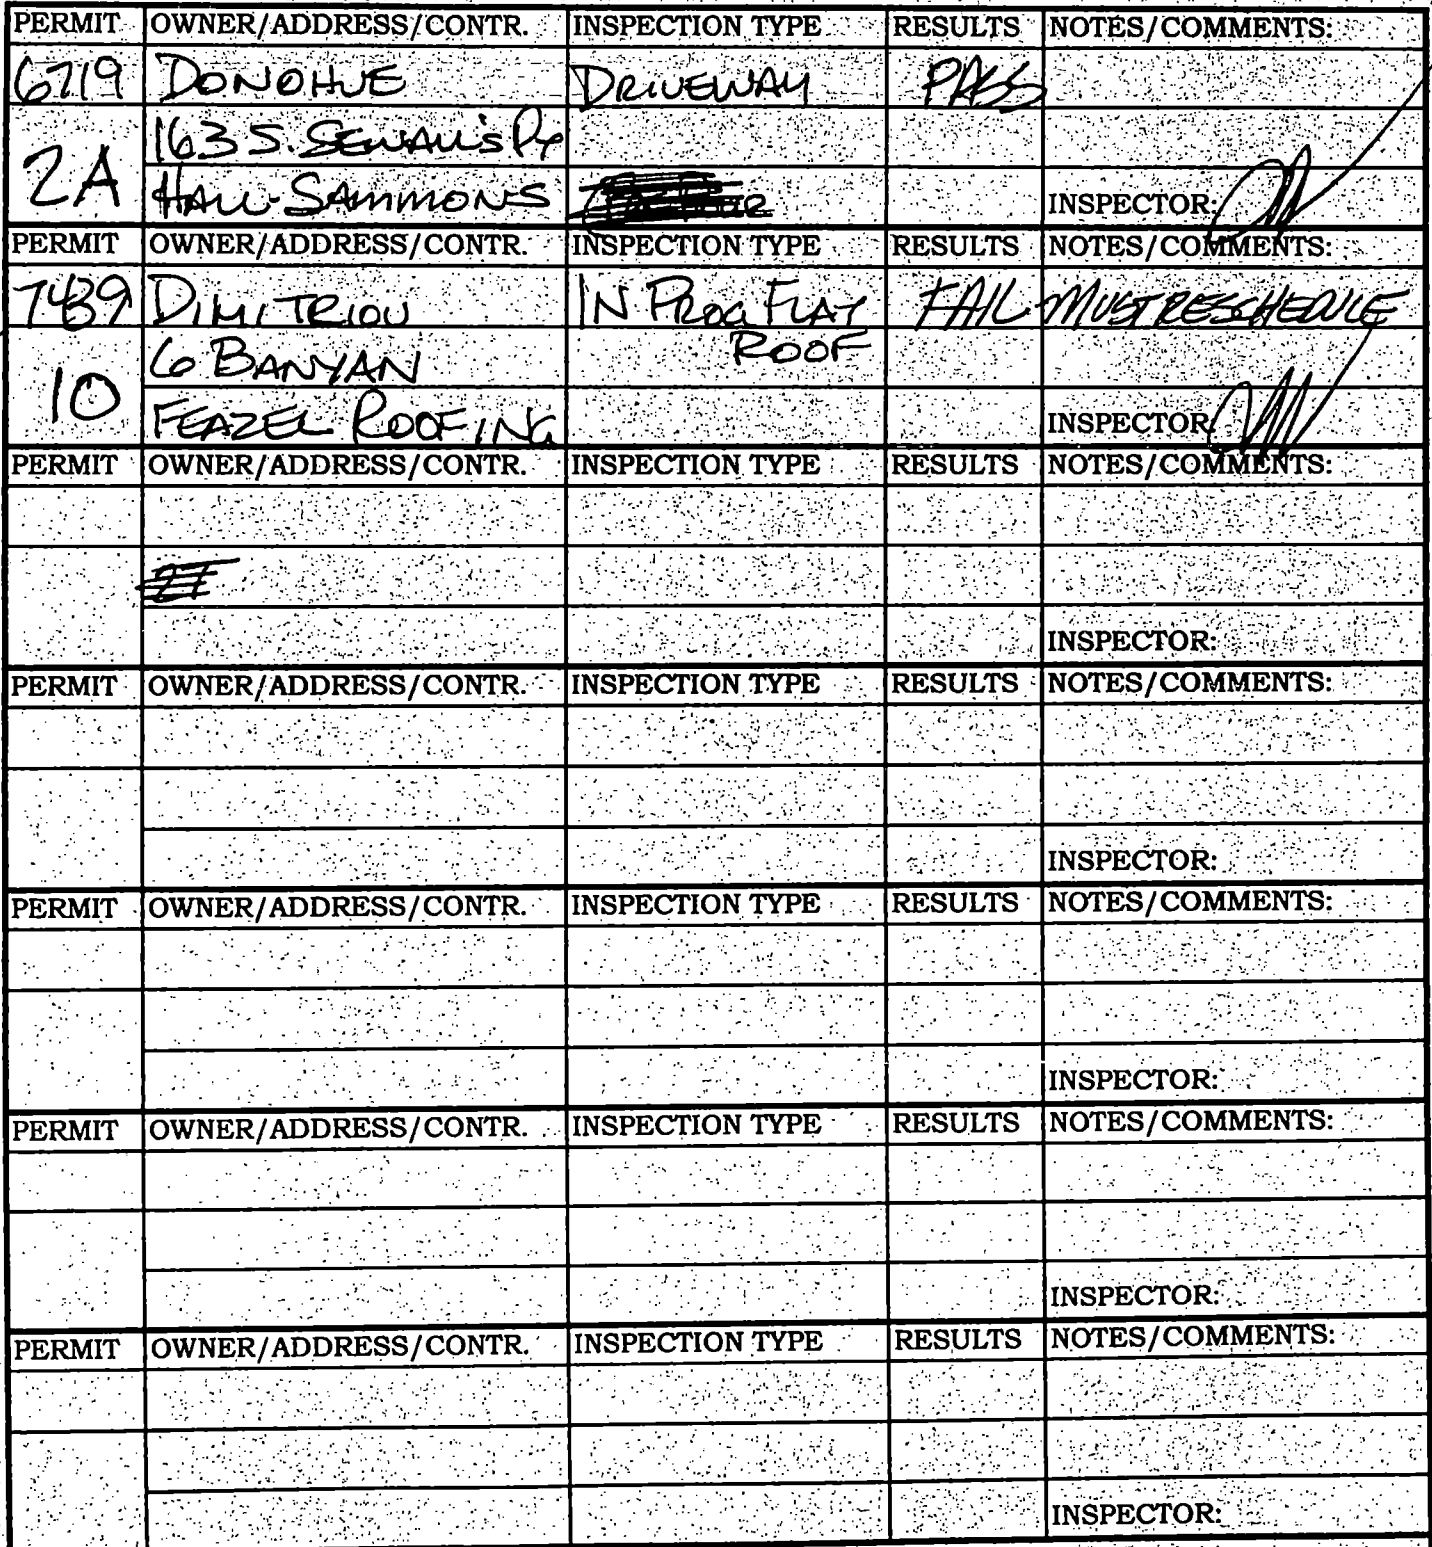 PERMIT OWNER/ADDRESS/CONTR. INSPECTION TYPE RESULTS NOTES/COMMENTS:
6719 DONOHUE DRIVEWAY PASS
163 S. SEWALL'S PT
2A HALL-SAMMONS INSPECTOR:
PERMIT OWNER/ADDRESS/CONTR. INSPECTION TYPE RESULTS NOTES/COMMENTS:
DIMITRIOU IN PROG FLAT FAIL MUST RESCHEDULE
6 BANYAN ROOF
10 FEAZEL ROOFING INSPECTOR:
PERMIT OWNER/ADDRESS/CONTR. INSPECTION TYPE RESULTS NOTES/COMMENTS:
INSPECTOR:
PERMIT OWNER/ADDRESS/CONTR. INSPECTION TYPE RESULTS NOTES/COMMENTS:
INSPECTOR:
PERMIT OWNER/ADDRESS/CONTR. INSPECTION TYPE RESULTS NOTES/COMMENTS:
INSPECTOR:
PERMIT OWNER/ADDRESS/CONTR. INSPECTION TYPE RESULTS NOTES/COMMENTS:
INSPECTOR:
PERMIT OWNER/ADDRESS/CONTR. INSPECTION TYPE RESULTS NOTES/COMMENTS:
INSPECTOR: